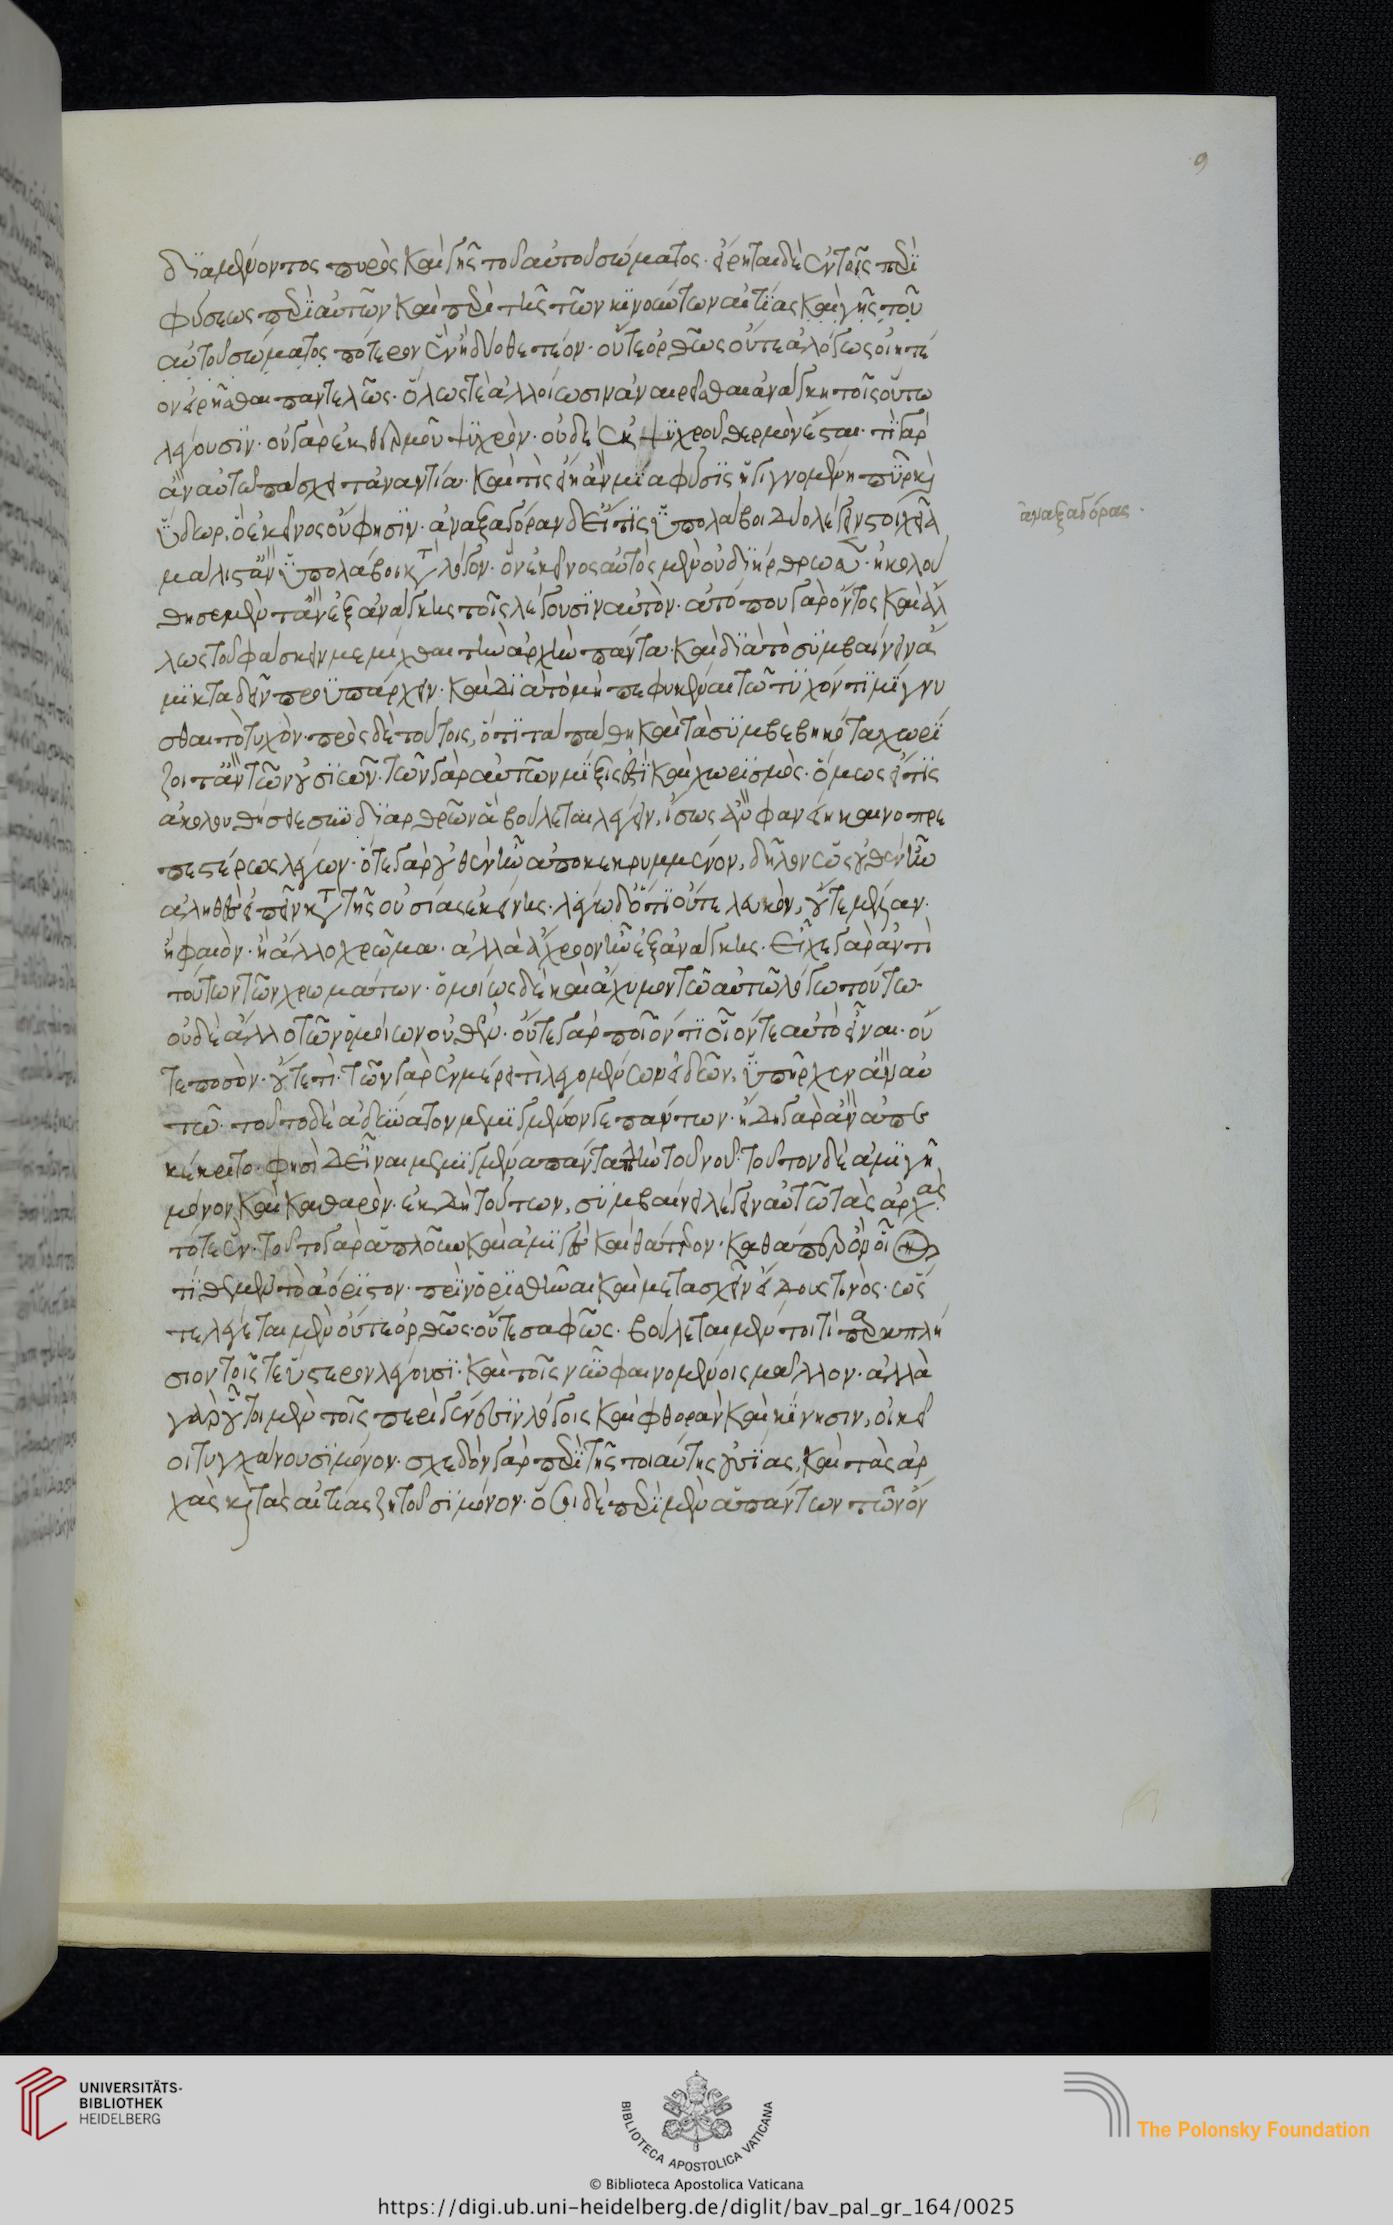 9
διαμένοντος πυρὸς καὶ γῆς τοῦ αὐτοῦ σώματος· εἴρηται δὲ ἐν τοῖς περὶ
φύσεως περὶ αὐτῶν καὶ περὶ τῆς τῶν κινούντων αἰτίας καὶ γῆς τοῦ
αὐτοῦ σώματος πότερον ἓν ἢ δύο θετέον· οὔτε ὀρθῶς οὔτε ἀλόγως οἰητέ
ον εἰρῆσθαι παντελῶς· ὅλως τὲ ἀλλοίωσιν ἀναιρεῖσθαι ἀνάγκη τοῖς οὕτω
λέγουσιν· οὐ γὰρ ἐκ θερμοῦ ψυχρὸν· οὐδὲ ἐκ ψυχροῦ θερμὸν ἔσται· τί γὰρ
ἂν αὐτῶ πάσχει τἀναντία· καὶ τίς εἴη ἂν μία φύσις ἡ γιγνομένη πῦρ καὶ
ὕδωρ, ὃ ἐκεῖνος οὔ φησιν· ἀναξαγόραν δ' εἴ τις ὑπολάβοι δύο λέγειν στοιχεῖα
ἀναξαγόρας·
μάλιστ' ἂν ὑπολάβοι κατὰ λόγον· ὃν ἐκεῖνος αὐτὸς μὲν οὐ διήρθρωσεν· ἠκολού
θησε μὲν τ' ἂν ἐξ ἀνάγκης τοῖς λέγουσιν αὐτὸν· ἀτόπου γὰρ ὄντος καὶ ἄλ
λως τοῦ φάσκειν μεμίχθαι τὴν ἀρχὴν πάντα· καὶ διὰ τὸ συμβαίνειν ἄ
μικτα δεῖν προϋπάρχειν· καὶ διὰ τὸ μὴ πεφυκέναι τῶ τυχόντι μίγνυ
σθαι τὸ τυχὸν· πρὸς δὲ τούτοις, ὅτι τὰ πάθη καὶ τὰ συμβεβηκότα χωρί
ζοιτ' ἂν τῶν οὐσιῶν· τῶν γὰρ αὐτῶν μίξις ἐστὶ καὶ χωρισμὸς· ὅμως εἴ τις
ἀκολουθήσειε συνδιαρθρῶν ἃ βούλεται λέγειν, ἴσως ἂν φανείη καινοπρε
πεστέρως λέγων· ὅτε γὰρ οὐθὲν ἦν ἀποκεκρυμμένον, δῆλον ὡς οὐθὲν ἦν
ἀληθὲς εἰπεῖν κατὰ τῆς οὐσίας ἐκείνης· λέγω δ' ὅτι οὔτε λευκὸν, οὔτε μέλαν·
ἢ φαιὸν· ἢ ἄλλο χρῶμα· ἀλλὰ ἄχρον ἦν ἐξ ἀνάγκης· εἶχε γὰρ ἄν τι
τούτων τῶν χρωμάτων· ὁμοίως δὲ καὶ ἄχυμον τῶ αὐτῶ λόγω τούτω·
οὐδὲ ἄλλο τῶν ὁμοίων οὐθὲν· οὔτε γὰρ ποῖόν τι οἷόν τε αὐτὸ εἶναι· οὔ
τε ποσὸν· οὔτε τὶ· τῶν γὰρ ἐν μέρει τὶ λεγομένων εἰδῶν, ὑπῆρχεν ἂν αὐ
τῶ· τοῦτο δὲ ἀδύνατον μεμιγμένων γε πάντων· ἤδη γὰρ ἂν ἀπε
κέκριτο· φησὶ δ' εἶναι μεμιγμένα πάντα πλὴν τοῦ νοῦ· τοῦτον δὲ ἀμιγῆ
μόνον καὶ καθαρὸν· ἐκ δὴ τούτων, συμβαίνει λέγειν αὐτῶ τὰς ἀρχὰς·
τό τε ἓν· τοῦτο γὰρ ἁπλοῦν καὶ ἀμιγὲς καὶ θάτερον· καθάπερ ὂν οἷον
τίθεμεν τὸ ἀόριστον· πρὶν ὁρισθῆναι καὶ μετασχεῖν εἴδους τινὸς· ὥσ
τε λέγεται μὲν οὔτε ὀρθῶς· οὔτε σαφῶς· βούλεται μέντοι τὶ παραπλή
σιον τοῖς τε ὕστερον λέγουσι· καὶ τοῖς νῦν φαινομένοις μᾶλλον· ἀλλὰ
γὰρ οὗτοι μὲν τοῖς περὶ γένεσιν λόγοις καὶ φθορὰν καὶ κίνησιν, οἰκεῖ
οι τυγχάνουσι μόνον· σχεδὸν γὰρ περὶ τῆς τοιαύτης οὐσίας, καὶ τὰς ἀρ
χὰς καὶ τὰς αἰτίας ζητοῦσι μόνον· ὅσοι δὲ περὶ μὲν ἁπάντων τῶν ὄν
UNIVERSITÄTS-
BIBLIOTHEK
HEIDELBERG
BIBLIOTECA APOSTOLICA VATICANA
The Polonsky Foundation
© Biblioteca Apostolica Vaticana
https://digi.ub.uni-heidelberg.de/diglit/bav_pal_gr_164/0025